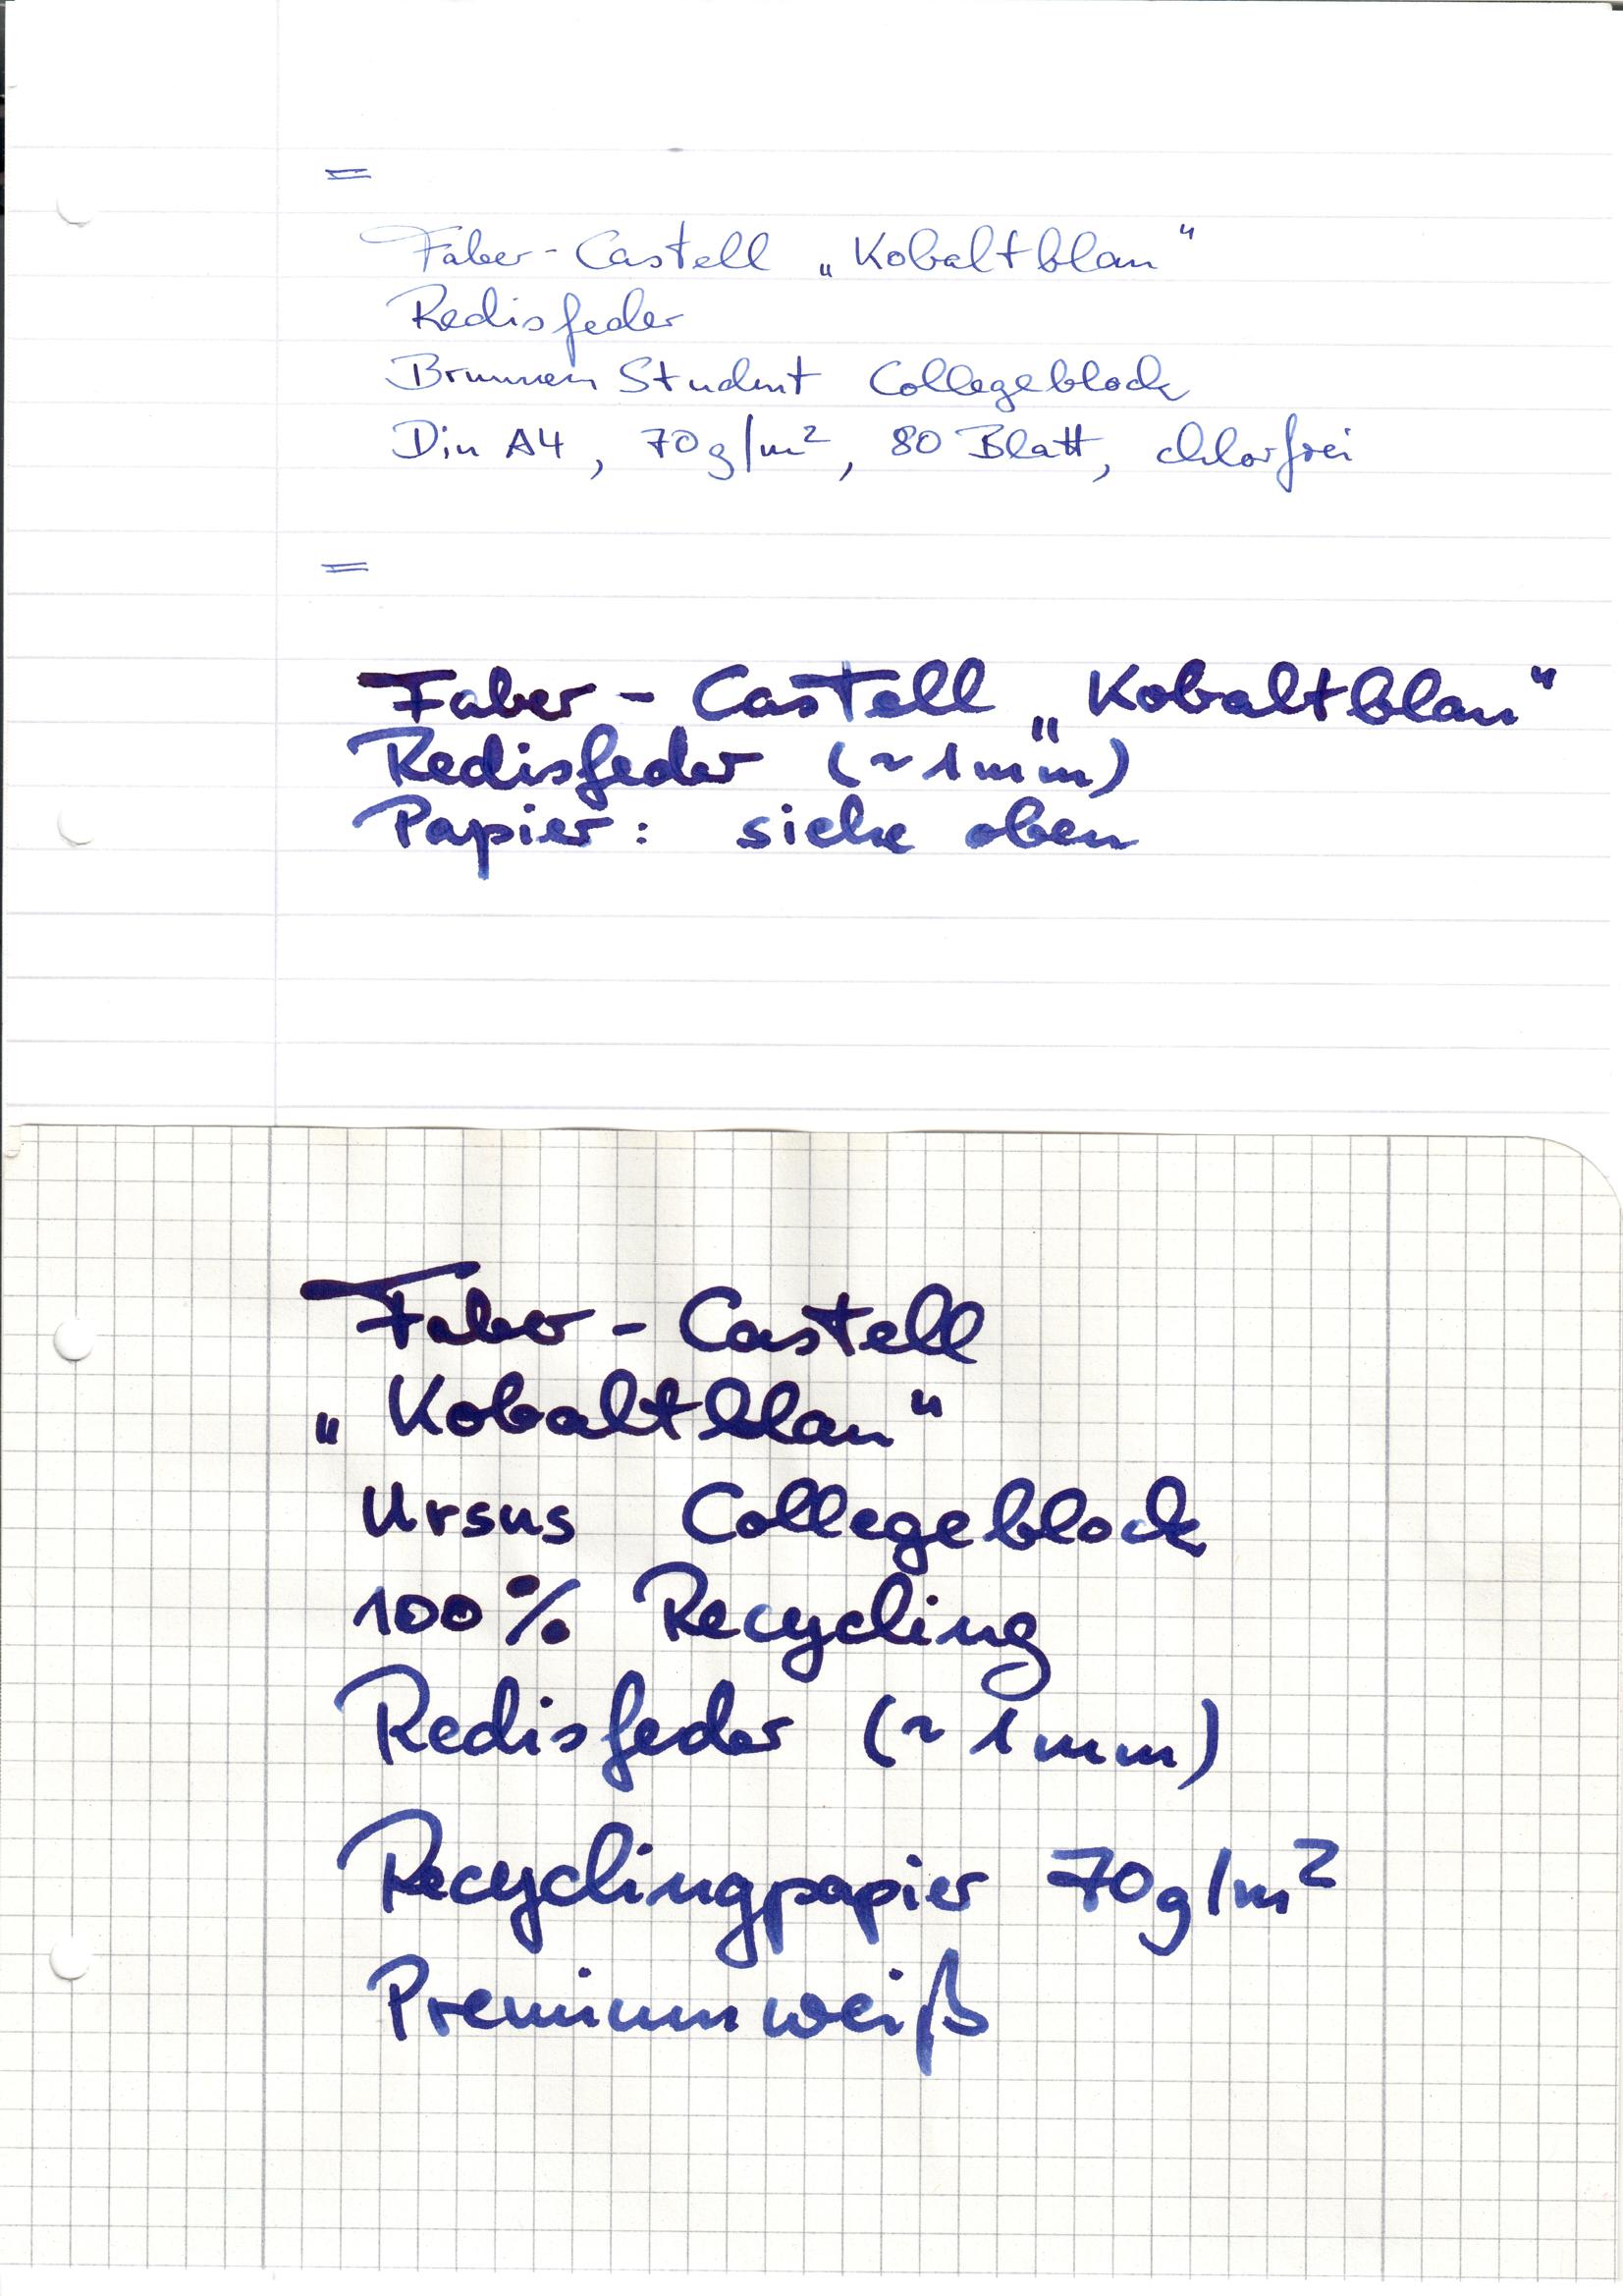 =
Faber-Castell „Kobaltblau“
Redisfeder
Brunnen Student Collegeblock
Din A4, 70g/m², 80 Blatt, chlorfrei
=
Faber-Castell „Kobaltblau“
Redisfeder (~1mm)
Papier: siehe oben
Faber-Castell
„Kobaltblau“
Ursus Collegeblock
100% Recycling
Redisfeder (~1mm)
Recyclingpapier 70g/m²
Premiumweiß